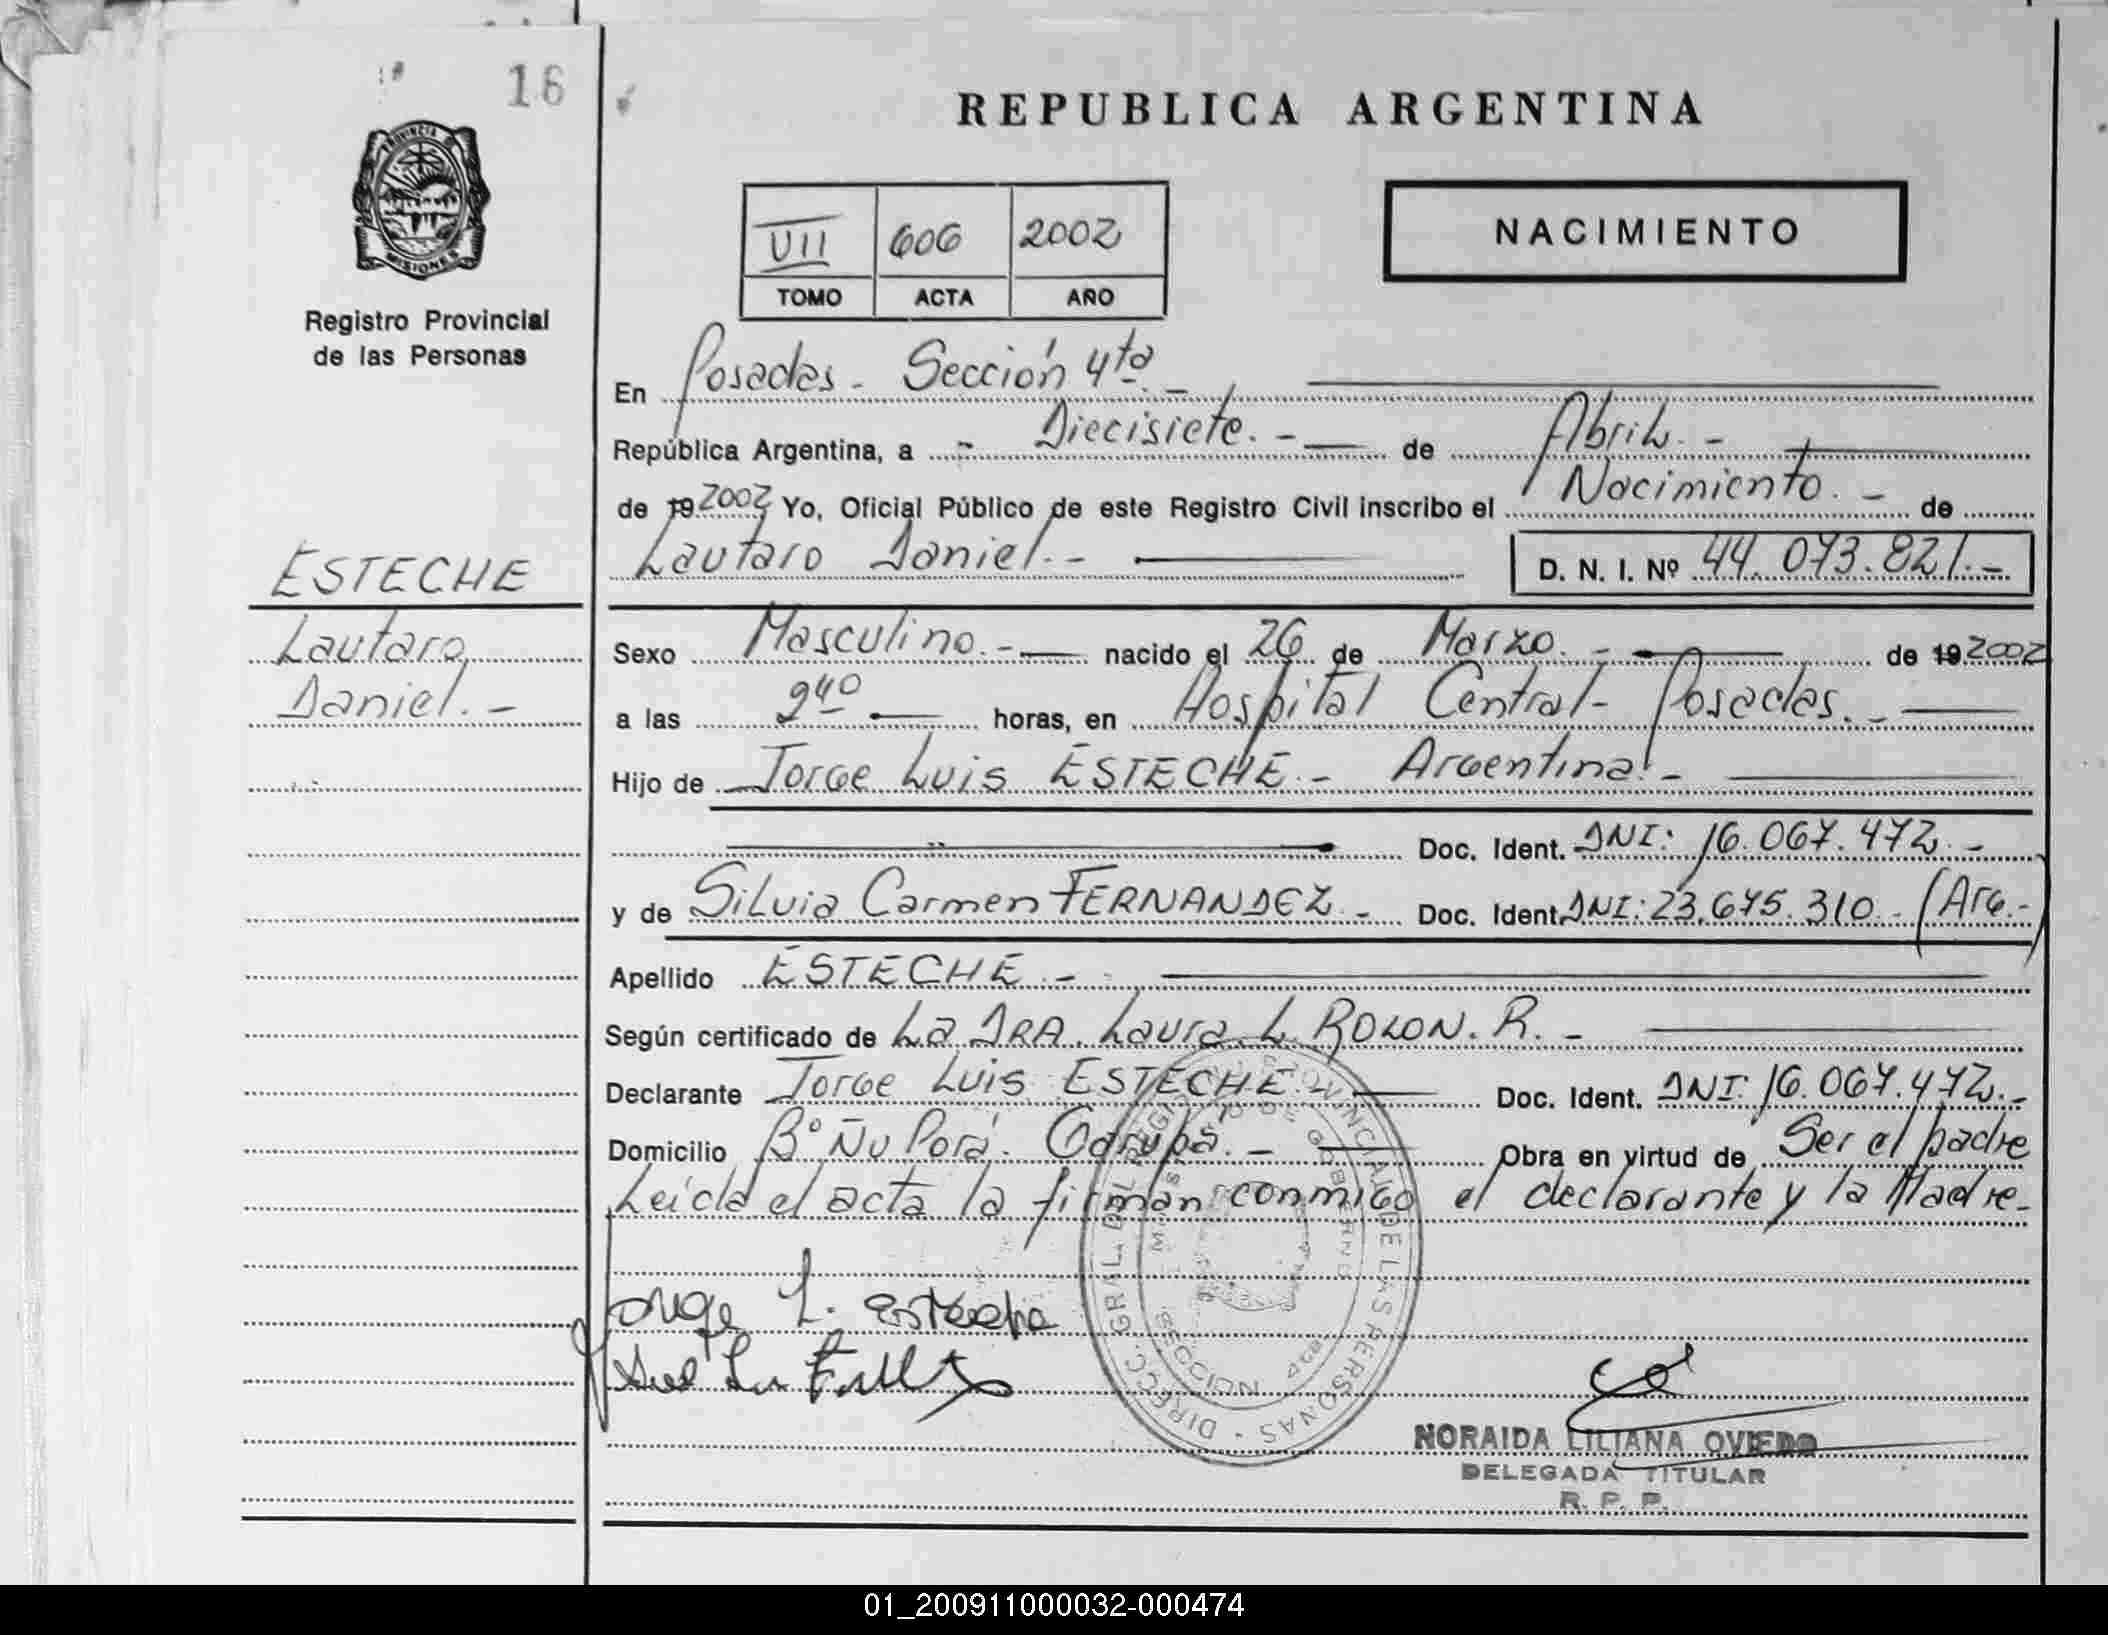 16
REPUBLICA ARGENTINA
PROVINCIA
MISIONES
Registro Provincial
de las Personas
VII 606 2002
TOMO ACTA AÑO
NACIMIENTO
En Posadas - Sección 4ta. -
República Argentina, a - Diecisiete. - de Abril. -
de 19 2002 Yo, Oficial Público de este Registro Civil inscribo el Nacimiento. - de
Lautaro Daniel. - D. N. I. Nº 44.073.821. -
ESTECHE
Lautaro
Daniel. -
Sexo Masculino. - nacido el 26 de Marzo. - de 19 2002
a las 940 horas, en Hospital Central - Posadas. -
Hijo de Jorge Luis ESTECHE. - Argentina. -
Doc. Ident. DNI: 16.067.472. -
y de Silvia Carmen FERNANDEZ. - Doc. Ident. DNI: 23.675.310. - (Arg. -)
Apellido ESTECHE. -
Según certificado de La DRA. Laura L. ROLON. R. -
Declarante Jorge Luis ESTECHE. - Doc. Ident. DNI: 16.067.472. -
Domicilio Bº Ñu Porá. Garupá. - Obra en virtud de Ser el padre
Leída el acta la firman conmigo el declarante y la Madre. -
Jorge L. Esteche
DIRECC. GRAL. DEL REGISTRO PROVINCIAL DE LAS PERSONAS
SECCION
NORAIDA LILIANA OVIEDO
DELEGADA TITULAR
R. P. P.
01_200911000032-000474